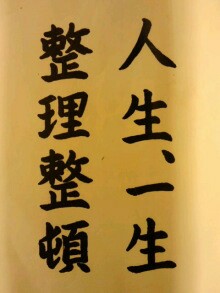 人生、一生
整理整頓